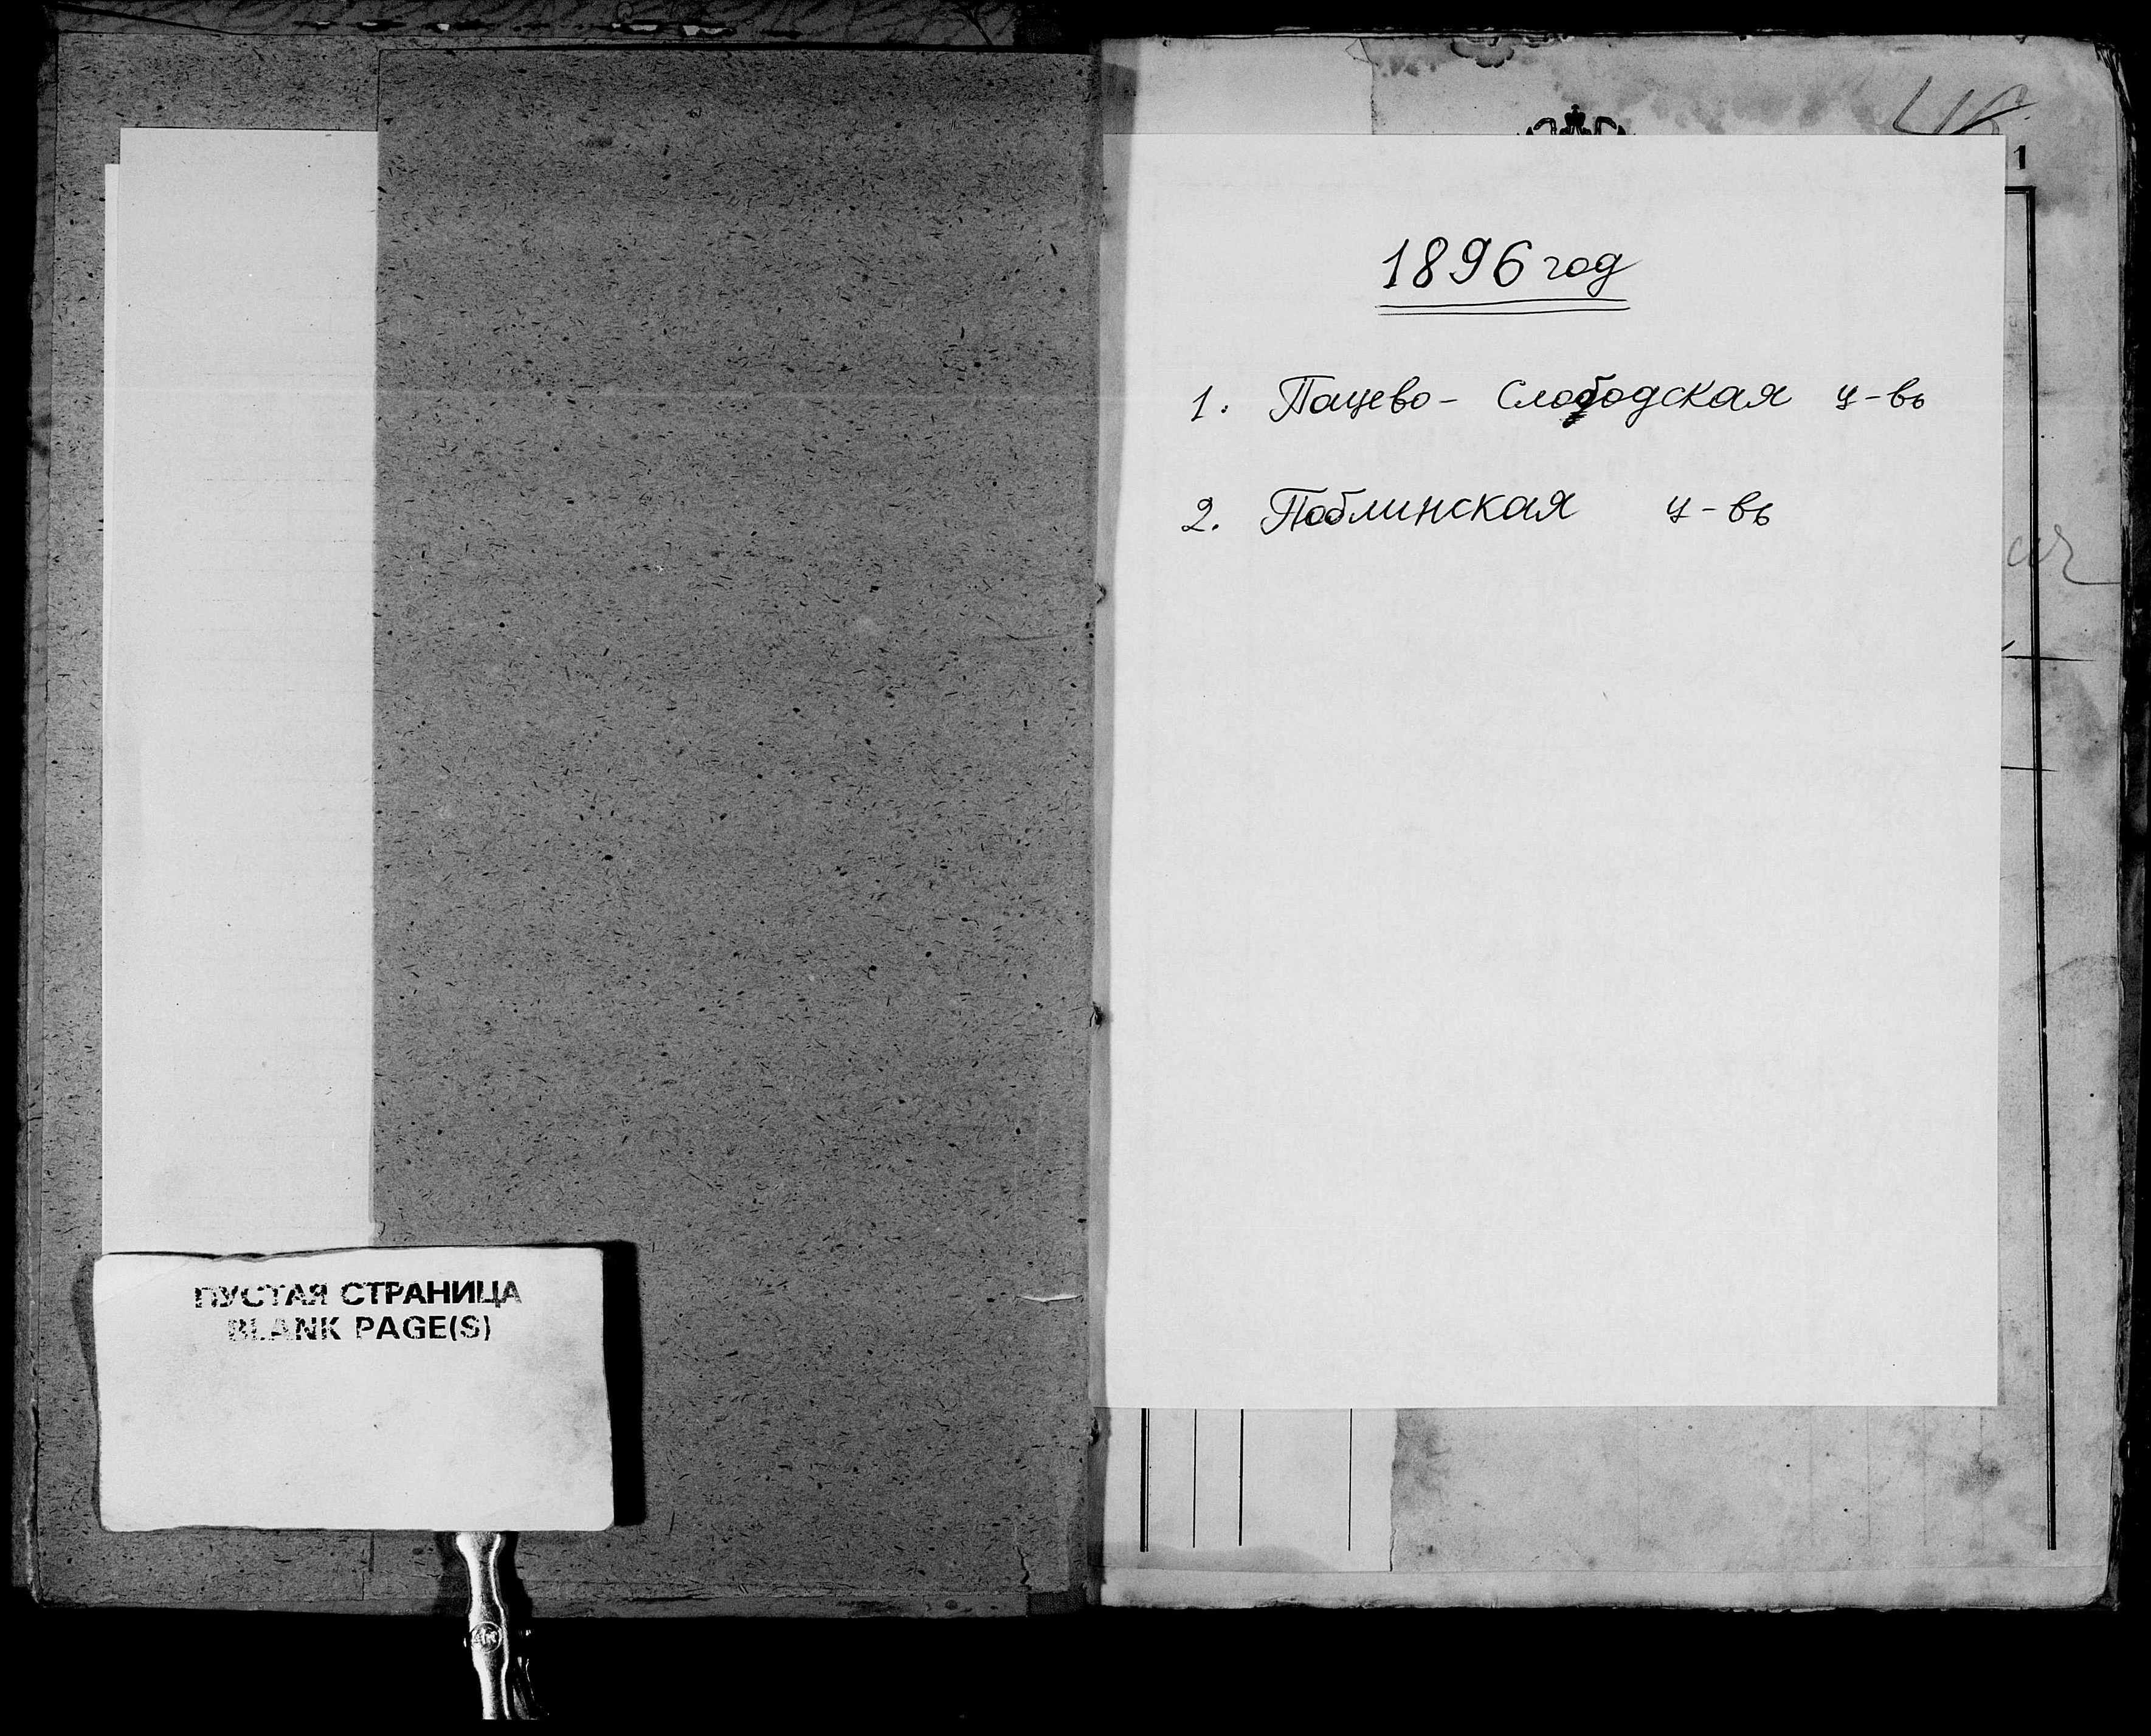 ПУСТАЯ СТРАНИЦА
BLANK PAGE(S)
46
1
1896 год
1. Пацево - Слободская ц-вь
2. Поблинская ц-вь